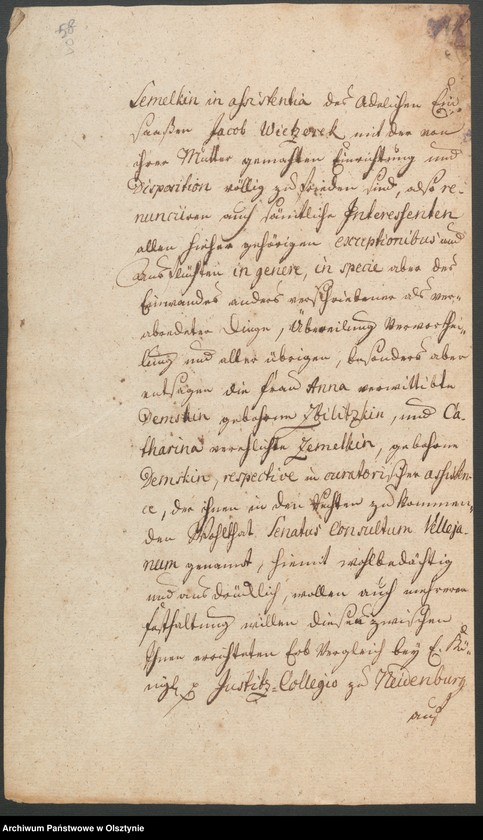 58
Semelkin in assistentia des Adelichen Ein-
saaßen Jacob Wietzorek mit der von
ihrer Mutter gemachten Einrichtung und
Disposition völlig zu frieden sind, also re-
nunciiren auch sämtliche Interessenten
allen hieher gehörigen exceptionibus und
Ausflüchten in genere, in specie aber des
Einwandes anders verschriebener als ver-
abredeter Dinge, Übereilung Vervorthei-
lung und aller übrigen, besonders aber
entsagen die Frau Anna verwittibte
Demskin gebohrne Zbilitzkin, und Ca-
tharina verehligte Zemelkin, gebohrne
Demskin, respective in curatorischer assisten-
ce, der ihnen in den Rechten zu kommen-
den Wohlthat Senatus Consultum Velleja-
num genannt, hiemit wohlbedächtig
und ausdrücklich, wollen auch mehreren
Festhaltung willen diesen zwischen
Ihnen errichteten Erb Vergleich bey E. Kö-
nigl. p Justitz-Collegio zu Neidenburg
auf
Archiwum Państwowe w Olsztynie